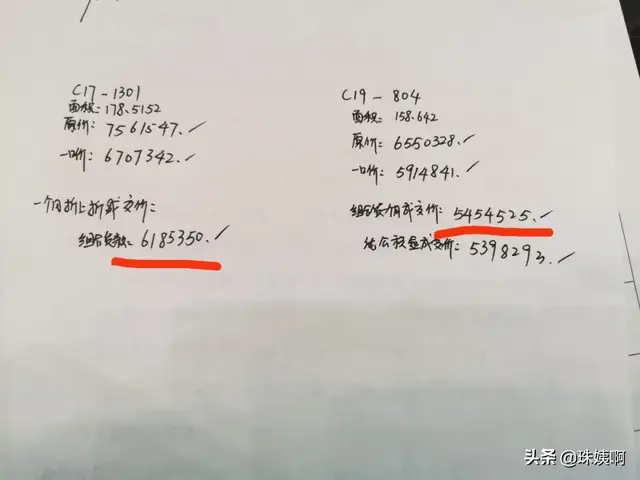 C17-1301
面积:178.5152
原价:7561547.✓
一口价:6707342.✓
一个月折上折成交价:
组合贷款:6185350.✓
C19-804
面积:158.642
原价:6550328.✓
一口价:5914841.✓
组合贷个月成交价:5454525.✓
纯公积金成交价:5398293.✓
头条 @珠姨啊